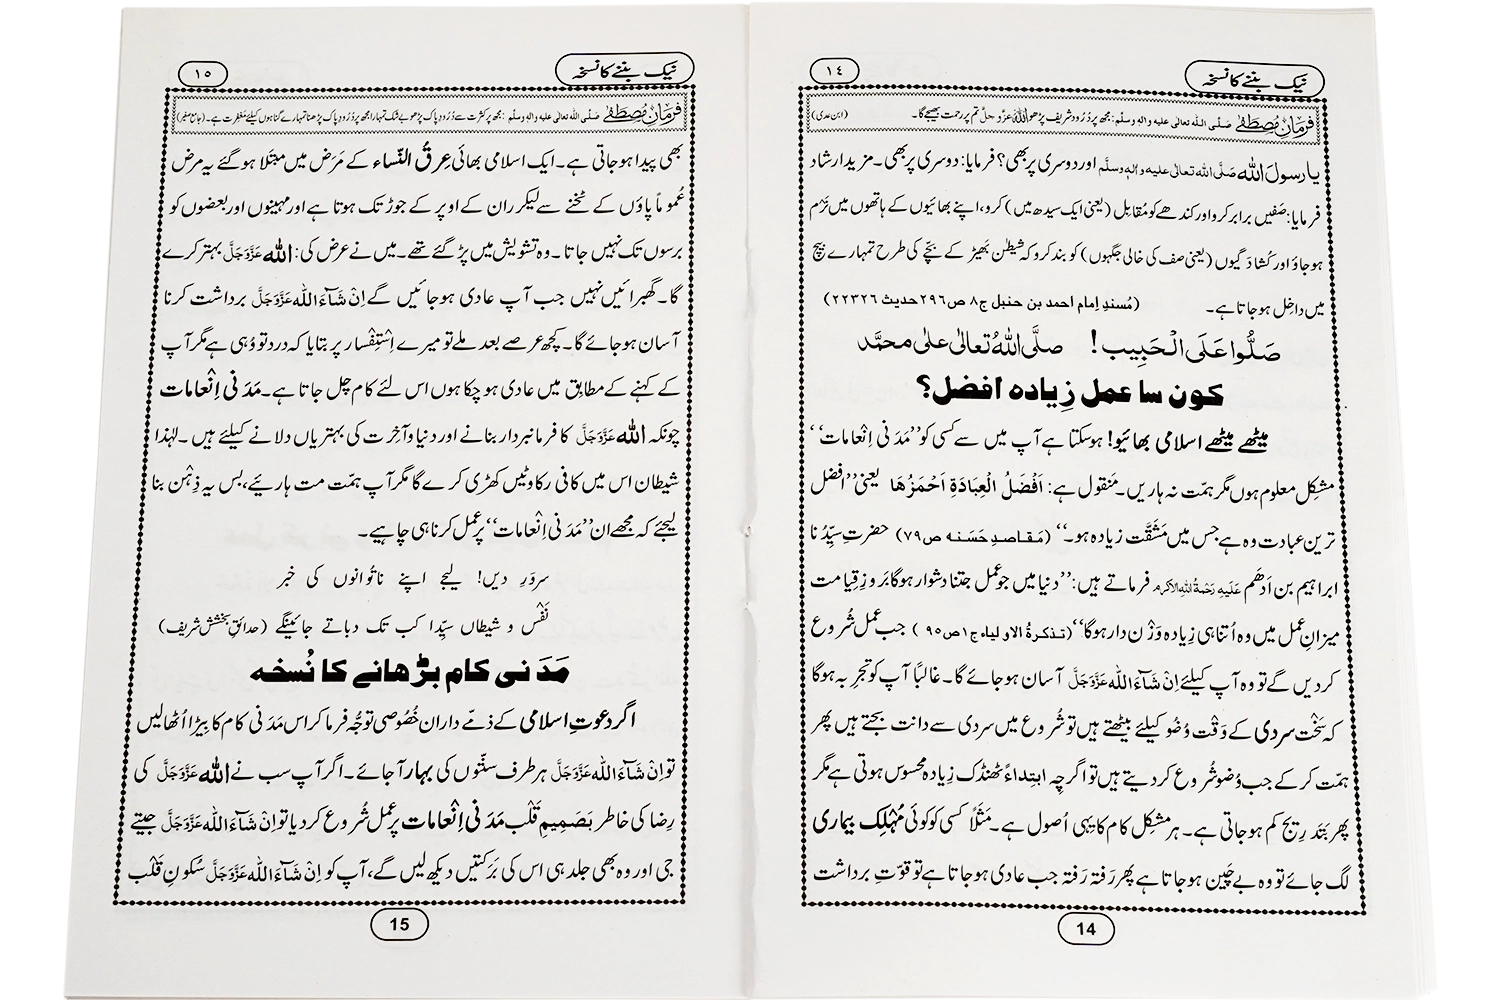 نیک بننے کا نسخہ
١٤
فرمانِ مصطَفٰے صلَّی اللہ تعالیٰ علیہ والہٖ وسلَّم: مجھ پر دُرُود شریف پڑھو اللہ عزّوجلَّ تم پر رحمت بھیجے گا۔ (ابن عدی)
یا رسولَ اللہ صَلَّی اللہ تعالیٰ علیہ والہٖ وسلَّم اور دوسری پر بھی؟ فرمایا: دوسری پر بھی۔ مزید ارشاد
فرمایا: صَفیں برابر کرو اور کندھے کو مُقابِل (یعنی ایک سیدھ میں) کرو، اپنے بھائیوں کے ہاتھوں میں نَرْم
ہو جاؤ اور کُشادَگیوں (یعنی صف کی خالی جگہوں) کو بند کرو کہ شیطٰن بَھیڑ کے بچّے کی طرح تمہارے بیچ
میں داخِل ہو جاتا ہے۔ (مُسندِ اِمام احمد بن حنبل ج٨ ص٢٩٦ حدیث ٢٢٣٢٦)
صَلُّوا عَلَی الْحَبِیب! صلَّی اللہُ تعالیٰ علیٰ محمَّد
کون سا عمل زِیادہ افضل؟
میٹھے میٹھے اسلامی بھائیو! ہو سکتا ہے آپ میں سے کسی کو ’’مَدَنی اِنْعامات‘‘
مشکِل معلوم ہوں مگر ہمّت نہ ہاریں۔ مَنقول ہے: اَفْضَلُ الْعِبَادَۃِ اَحْمَزُھَا یعنی ’’افضل
ترین عبادت وہ ہے جس میں مَشَقَّت زیادہ ہو۔‘‘ (مَقاصدِ حَسَنہ ص٧٩) حضرتِ سیِّدُنا
ابراہیم بن اَدھَم عَلَیْہِ رَحْمَۃُ اللہِ الاکرم فرماتے ہیں: ’’دنیا میں جو عمل جتنا دشوار ہوگا بَروزِ قِیامت
میزانِ عمل میں وہ اُتنا ہی زِیادہ وَزْن دار ہوگا‘‘ (تذکرۃُ الاولیاء ج١ ص٩٥) جب عمل شُروع
کردیں گے تو وہ آپ کیلئے اِنْ شَآءَ اللہ عَزَّوَجَلَّ آسان ہو جائے گا۔ غالباً آپ کو تجرِبہ ہوگا
کہ سَخْت سردی کے وَقْت وُضُو کیلئے بیٹھتے ہیں تو شُروع میں سردی سے دانت بجتے ہیں پھر
ہمّت کر کے جب وُضو شُروع کر دیتے ہیں تو اگرچِہ ابتِداءً ٹھنڈک زِیادہ محسوس ہوتی ہے مگر
پھر بَتَدرِیج کم ہو جاتی ہے۔ ہر مشکِل کام کا یہی اُصول ہے۔ مَثَلاً کسی کو کوئی مُہْلِک بیماری
لگ جائے تو وہ بے چَین ہو جاتا ہے پھر رَفتہ رَفتہ جب عادی ہو جاتا ہے تو قوّتِ برداشت
14
نیک بننے کا نسخہ
١٥
فرمانِ مصطَفٰے صلَّی اللہ تعالیٰ علیہ والہٖ وسلَّم: مجھ پر کثرت سے دُرُودِ پاک پڑھو بے شک تمہارا مجھ پر دُرُودِ پاک پڑھنا تمہارے گناہوں کیلئے مغفِرت ہے۔ (جامع صغیر)
بھی پیدا ہو جاتی ہے۔ ایک اسلامی بھائی عِرقُ النِّساء کے مَرَض میں مبتَلا ہو گئے یہ مرض
عُموماً پاؤں کے ٹخنے سے لیکر ران کے اوپر کے جوڑ تک ہوتا ہے اور مہینوں اور بعضوں کو
برسوں تک نہیں جاتا۔ وہ تشویش میں پڑ گئے تھے۔ میں نے عرض کی: اللہ عَزَّوَجَلَّ بہتر کرے
گا۔ گھبرائیں نہیں جب آپ عادی ہو جائیں گے اِنْ شَآءَ اللہ عَزَّوَجَلَّ برداشت کرنا
آسان ہو جائے گا۔ کچھ عرصے بعد ملے تو میرے اِسْتِفْسار پر بتایا کہ درد تو وُہی ہے مگر آپ
کے کہنے کے مطابِق میں عادی ہو چکا ہوں اس لئے کام چل جاتا ہے۔ مَدَنی اِنْعامات
چونکہ اللہ عَزَّوَجَلَّ کا فرمانبردار بنانے اور دنیا و آخِرت کی بہتریاں دلانے کیلئے ہیں۔ لہٰذا
شیطان اس میں کافی رکاوٹیں کھڑی کرے گا مگر آپ ہمّت مت ہاریئے، بس یہ ذِہْن بنا
لیجئے کہ مجھے ان ’’مَدَنی اِنْعامات‘‘ پر عمل کرنا ہی چاہیے۔
سروَرِ دیں! لیجے اپنے ناتُوانوں کی خبر
نَفْس و شیطاں سیِّدا کب تک دباتے جائینگے (حدائقِ بخشش شریف)
مَدَنی کام بڑھانے کا نُسخہ
اگر دعوتِ اسلامی کے ذمّے داران خُصُوصی توجُّہ فرما کر اس مَدَنی کام کا بِیڑا اُٹھا لیں
تو اِنْ شَآءَ اللہ عَزَّوَجَلَّ ہر طرف سنّتوں کی بہار آ جائے۔ اگر آپ سب نے اللہ عَزَّوَجَلَّ کی
رِضا کی خاطر بَصَمِیمِ قَلْب مَدَنی اِنْعامات پر عمل شُروع کر دیا تو اِنْ شَآءَ اللہ عَزَّوَجَلَّ جیتے
جی اور وہ بھی جلد ہی اس کی بَرَکتیں دیکھ لیں گے، آپ کو اِنْ شَآءَ اللہ عَزَّوَجَلَّ سُکونِ قَلْب
15